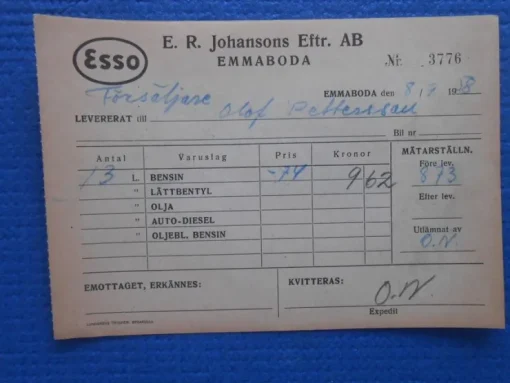 Esso
E. R. Johansons Eftr. AB
EMMABODA
Nr. 3776
EMMABODA den 8/7 1958
Försäljare
LEVERERAT till Olof Pettersson
Bil nr
Antal Varuslag Pris Kronor MÄTARSTÄLLN.
Före lev.
13 L. BENSIN -74 9 62 873
" LÄTTBENTYL
Efter lev.
" OLJA
" AUTO-DIESEL
Utlämnat av
" OLJEBL. BENSIN O.N.
EMOTTAGET, ERKÄNNES: KVITTERAS:
O.N.
Expedit